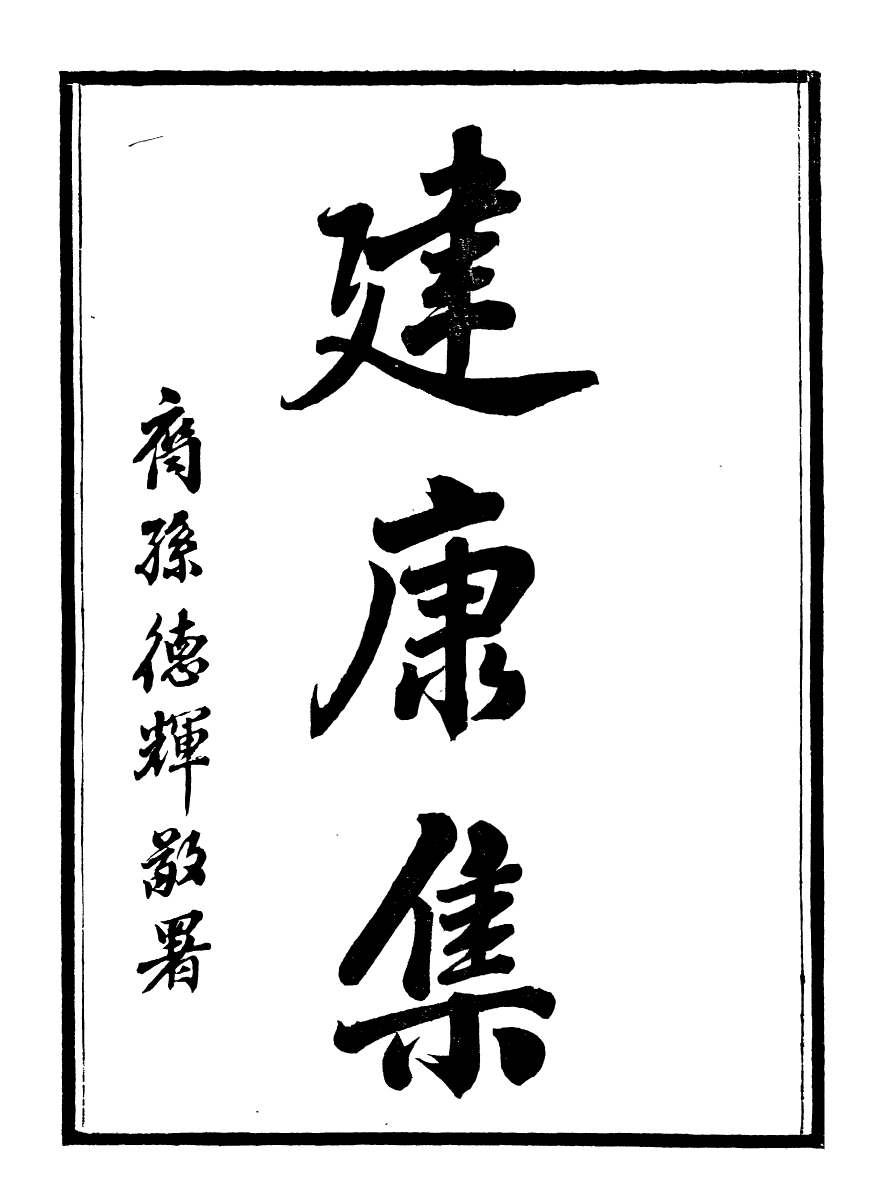 建康集
裔孫德輝敬署